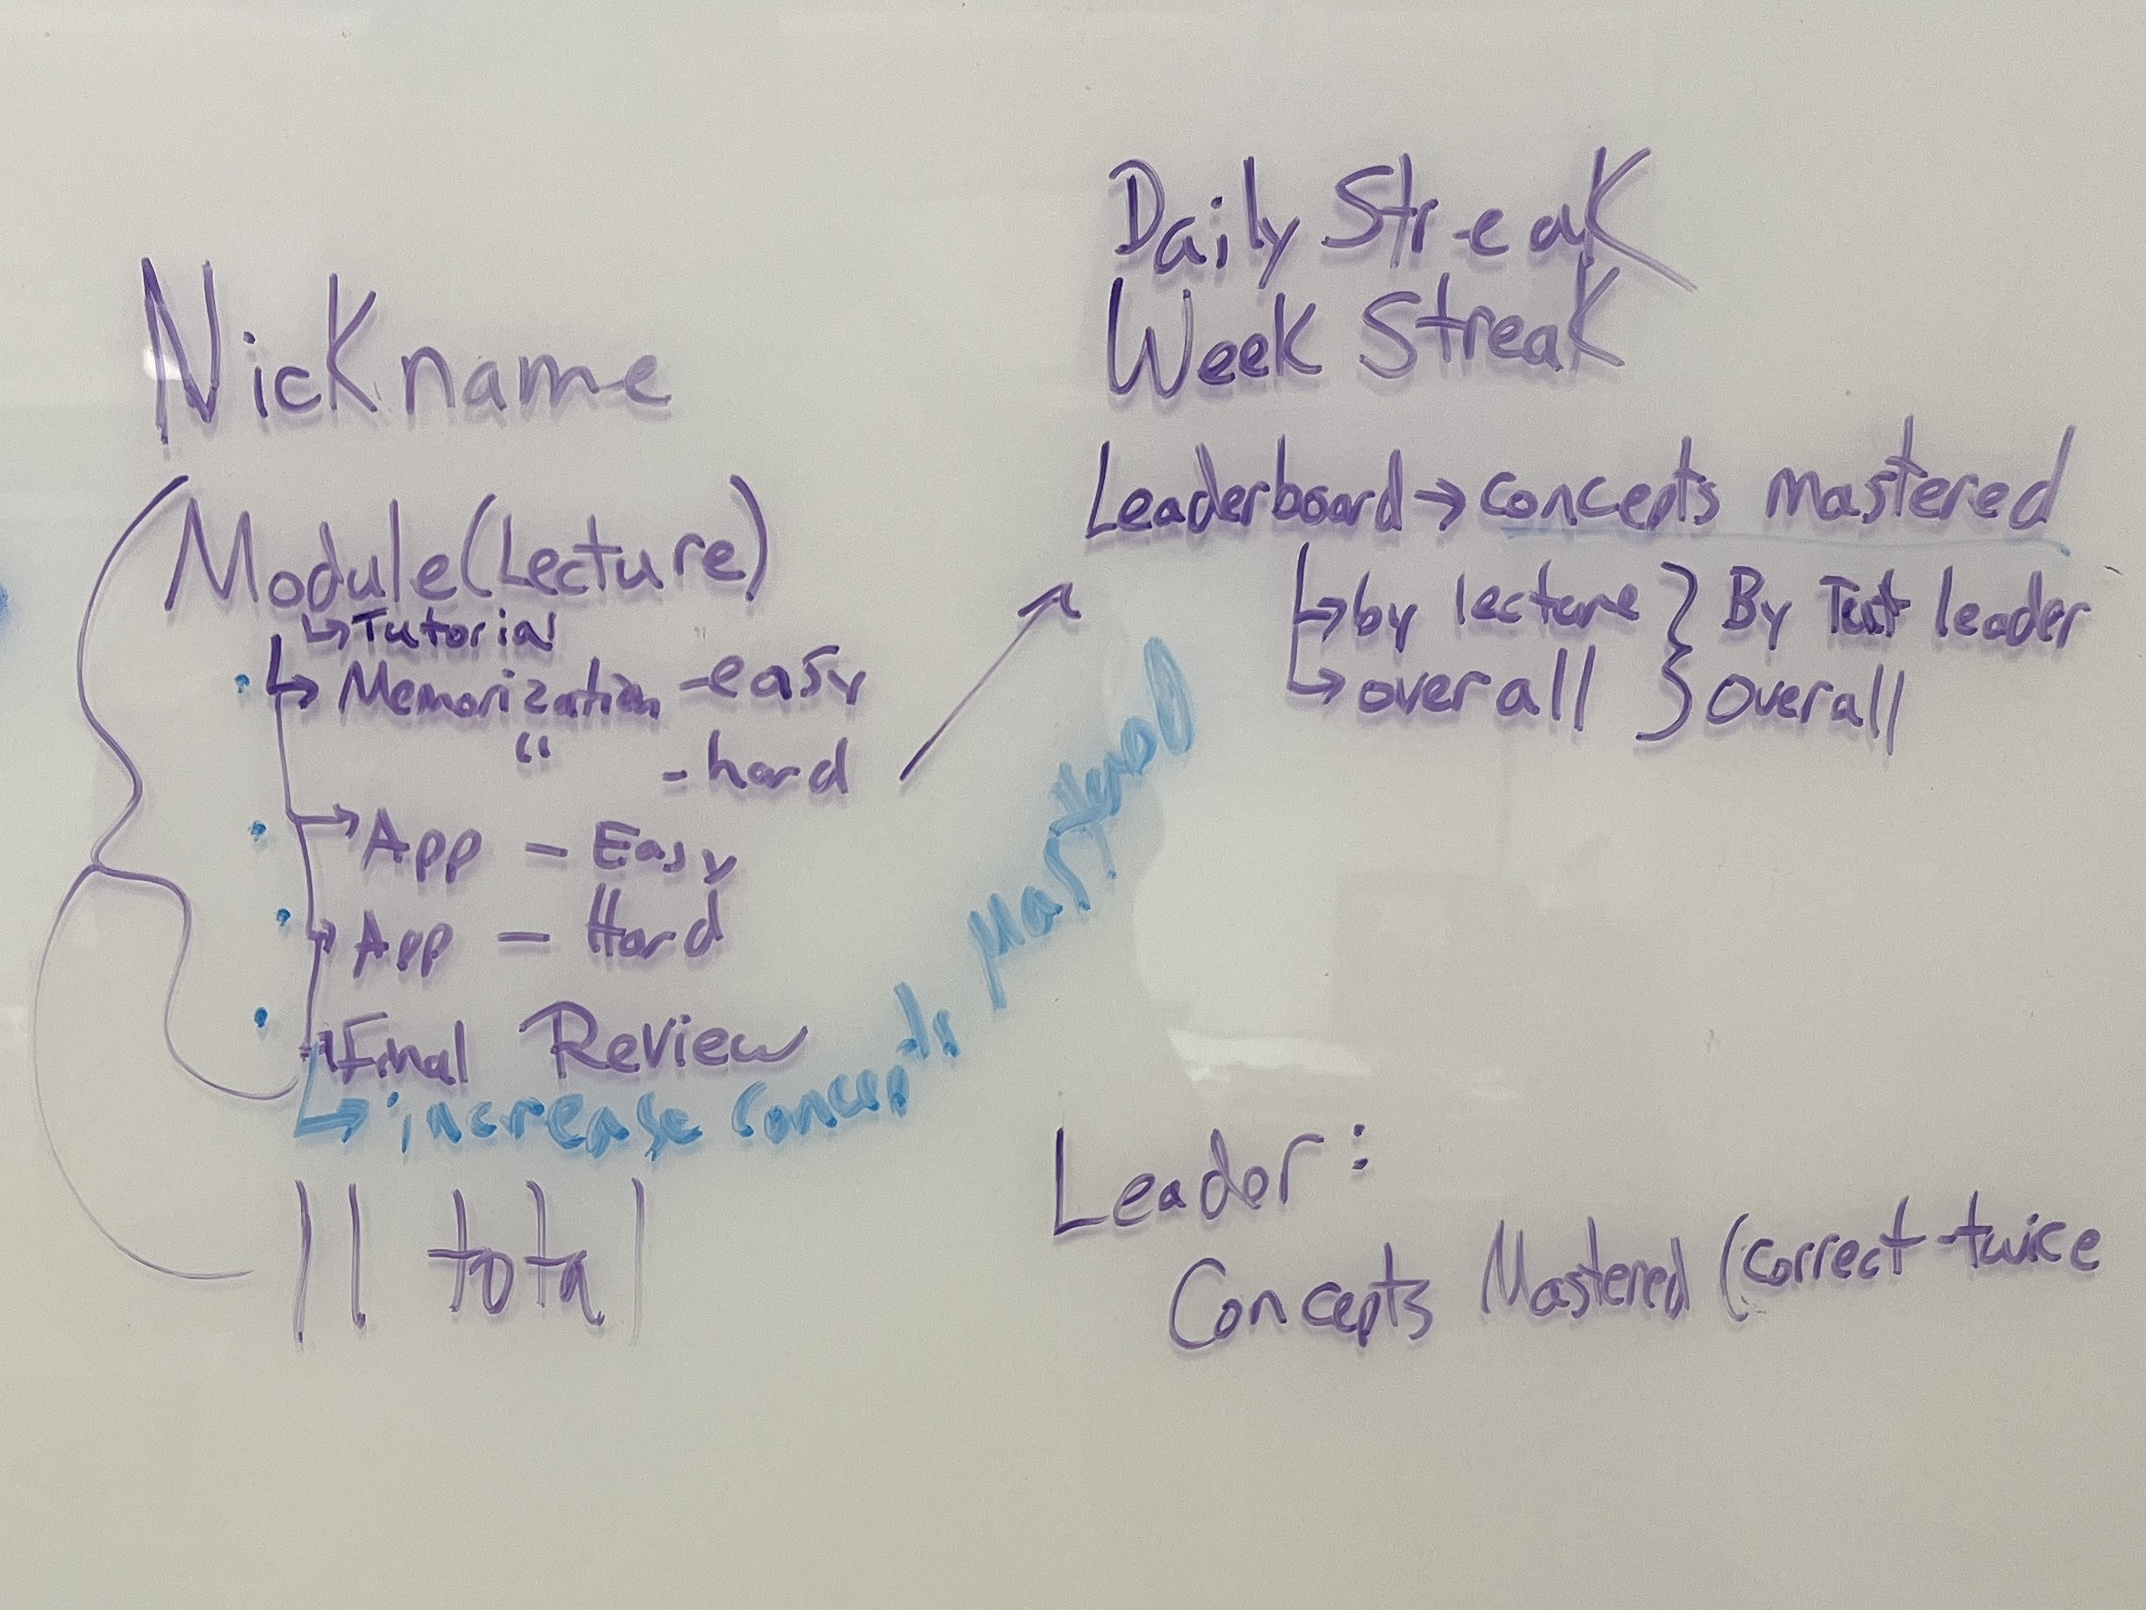 Nickname
Module (Lecture)
↳ Tutorial
↳ Memorization - easy
" - hard
→ App - Easy
→ App - Hard
→ Final Review
↳ increase concepts Mastered
11 total
Daily Streak
Week Streak
Leaderboard → concepts mastered
↳ by lecture } By Test leader
↳ overall } Overall
Leader:
Concepts Mastered (correct twice